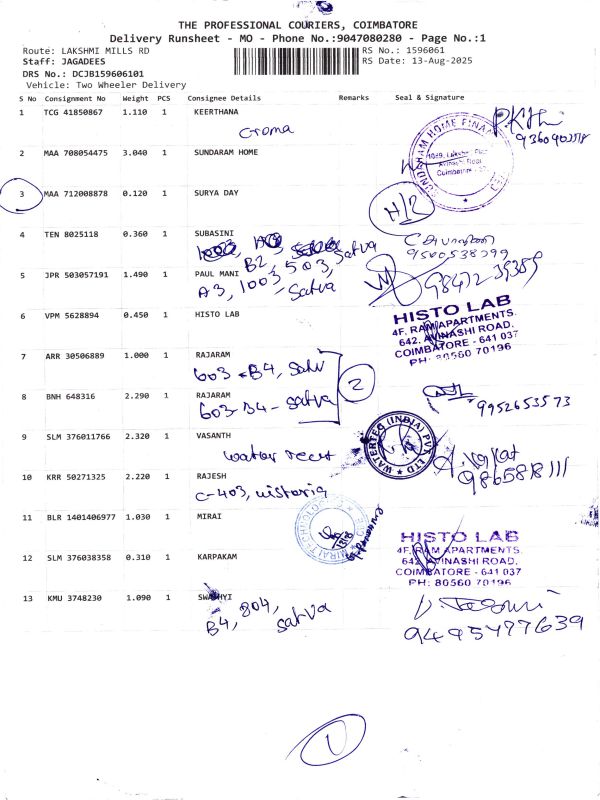 THE PROFESSIONAL COURIERS, COIMBATORE
Delivery Runsheet - MO - Phone No.:9047080280 - Page No.:1
Route: LAKSHMI MILLS RD
RS No.: 1596061
Staff: JAGADEES
RS Date: 13-Aug-2025
DRS No.: DCJB159606101
Vehicle: Two Wheeler Delivery
S No Consignment No Weight PCS Consignee Details Remarks Seal & Signature
1 TCG 41850867 1.110 1 KEERTHANA
croma
2 MAA 708054475 3.040 1 SUNDARAM HOME
SUNDARAM HOME FINAN
1089, Lakshmi
Avinashi Road
Coimbatore - 37
3 MAA 712008878 0.120 1 SURYA DAY
H/R
4 TEN 8025118 0.360 1 SUBASINI
B2, 503, Satva
9500538799
5 JPR 503057191 1.490 1 PAUL MANI
A3, 1003, Satva
6 VPM 5628894 0.450 1 HISTO LAB
HISTO LAB
4F, RAM APARTMENTS.
642, AVINASHI ROAD.
COIMBATORE - 641 037
PH: 80560 70196
7 ARR 30506889 1.000 1 RAJARAM
603 - B4, Satv
2
8 BNH 648316 2.290 1 RAJARAM
603-B4- Satva
9952653573
9 SLM 376011766 2.320 1 VASANTH
water
WATERTEC (INDIA) PVT. LTD
9865818111
10 KRR 50271325 2.220 1 RAJESH
C-403, wistoria
11 BLR 1401406977 1.030 1 MIRAI
12 SLM 376038358 0.310 1 KARPAKAM
HISTO LAB
4F, RAM APARTMENTS.
642, AVINASHI ROAD.
COIMBATORE - 641 037
PH: 80560 70196
13 KMU 3748230 1.090 1
B4, 804, Satva
9495477639
1